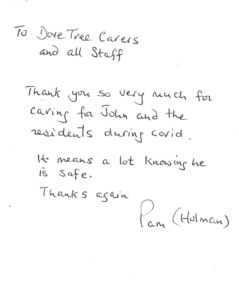 To Dove Tree Carers
and all Staff
Thank you so very much for
caring for John and the
residents during covid.
It means a lot knowing he
is safe.
Thanks again
Pam (Holman)